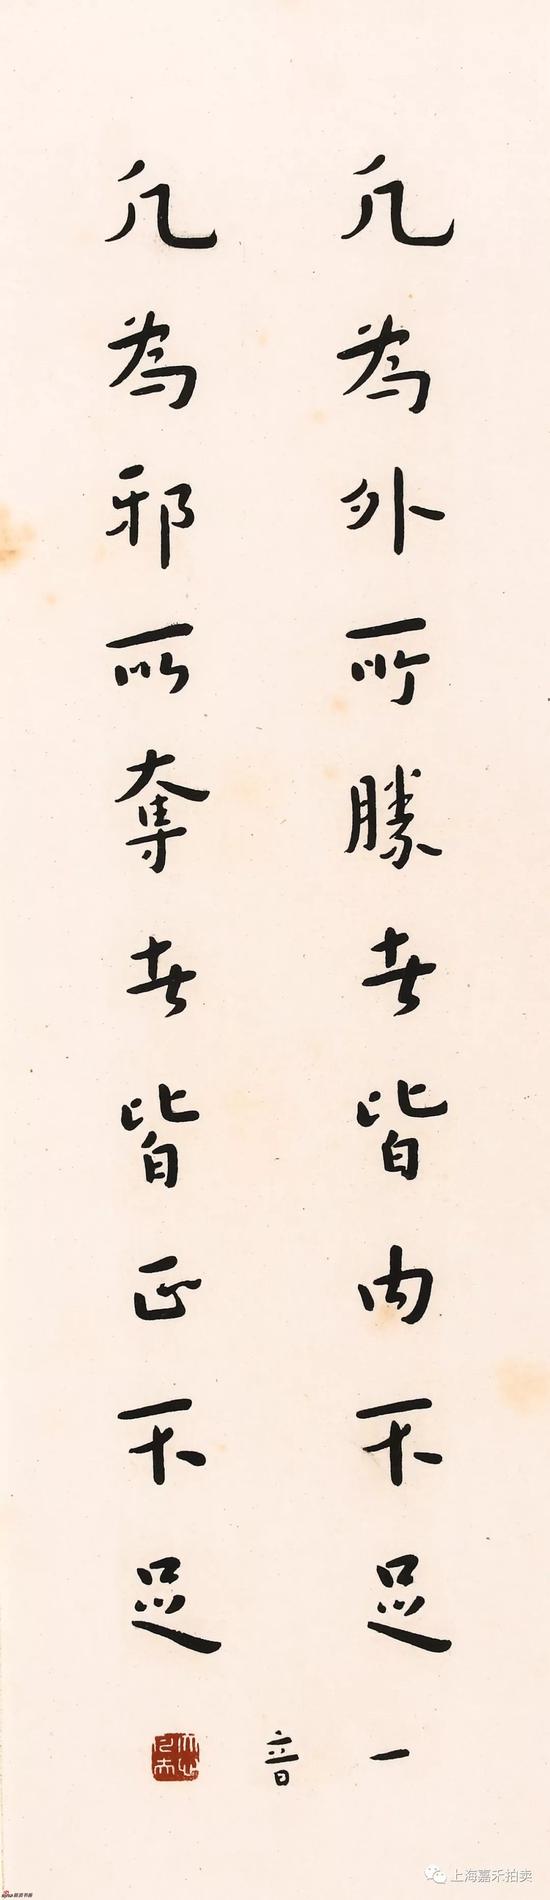 凡為外所勝者皆内不足
凡為邪所奪者皆正不足
一音
上海嘉禾拍卖